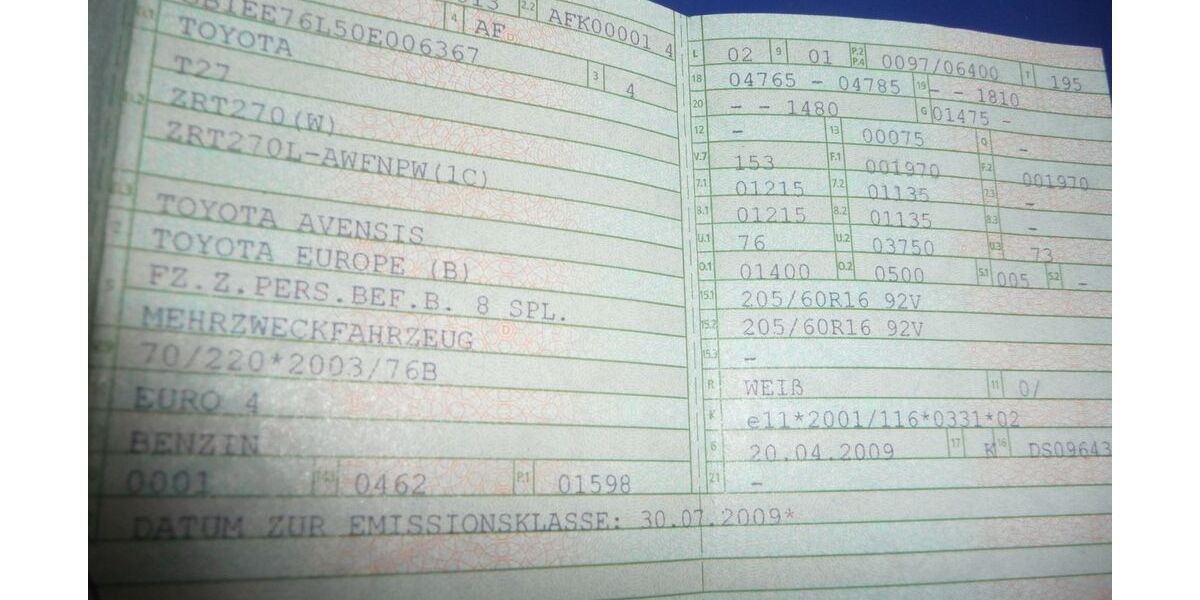 2.2 AFK00001 4
SB1EE76L50E006367 4 AF
TOYOTA 3 4
T27
ZRT270(W)
ZRT270L-AWFNPW(1C)
TOYOTA AVENSIS
TOYOTA EUROPE (B)
FZ.Z.PERS.BEF.B. 8 SPL.
MEHRZWECKFAHRZEUG
70/220*2003/76B
EURO 4
BENZIN
0001 0462 P.1 01598
DATUM ZUR EMISSIONSKLASSE: 30.07.2009*
L 02 9 01 P.2 P.4 0097/06400 T 195
18 04765 - 04785 19 - - 1810
20 - - 1480 G 01475 -
12 - 13 00075 Q -
V.7 153 F.1 001970 F.2 001970
7.1 01215 7.2 01135 7.3 -
8.1 01215 8.2 01135 8.3 -
U.1 76 U.2 03750 U.3 73
O.1 01400 O.2 0500 S.1 005 S.2 -
15.1 205/60R16 92V
15.2 205/60R16 92V
15.3 -
R WEIß 11 0/
K e11*2001/116*0331*02
6 20.04.2009 17 K 16 DS09643
21 -